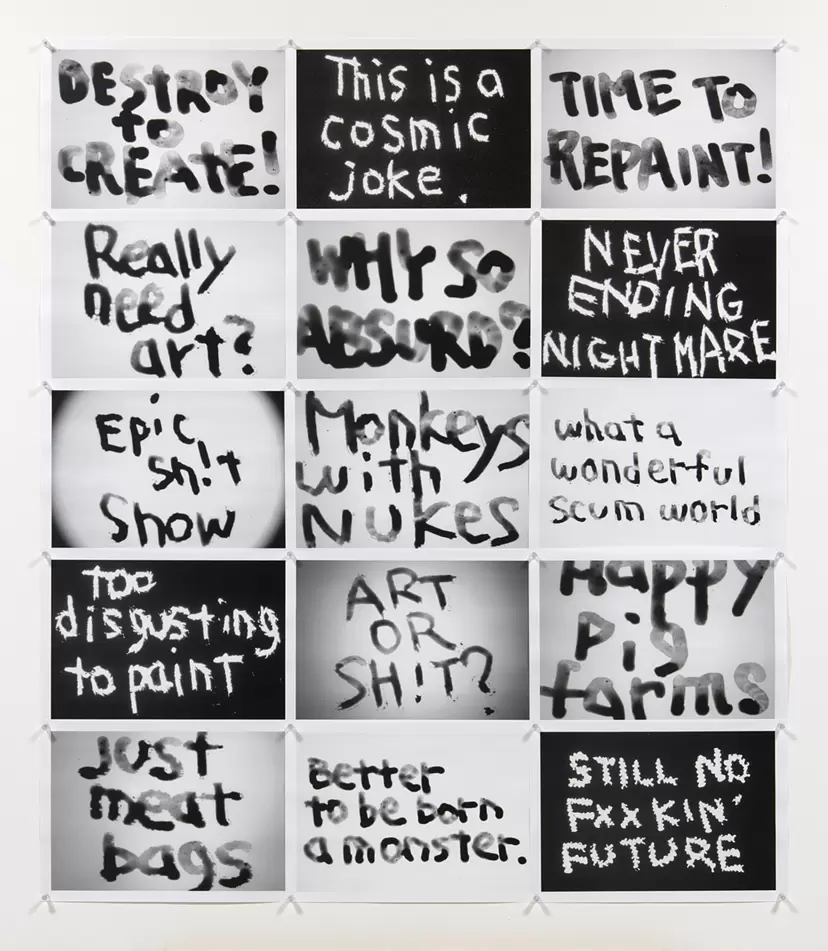 DESTROY
to
CREATE!
This is a
cosmic
joke.
TIME TO
REPAINT!
Really
need
art?
WHY SO
ABSURD?
NEVER
ENDING
NIGHTMARE
Epic
sh!t
Show
Monkeys
with
NUKES
what a
wonderful
scum world
too
disgusting
to paint
ART
OR
SH!T?
Happy
pig
farms
Just
meat
bags
Better
to be born
a monster.
STILL NO
FXXKIN'
FUTURE